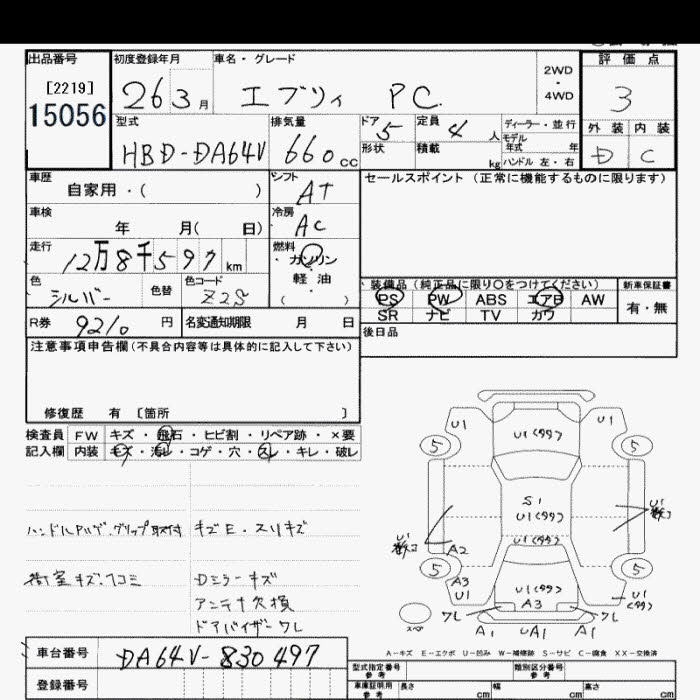 出品番号 初度登録年月 車名・グレード 評価点
[2219] 2WD
15056 26 3月 エブリィ PC ・ 3
4WD
型式 排気量 ドア 定員 ディーラー・並行 外装 内装
HBD-DA64V 660cc 5 4人 モデル年式 年 D C
形状 積載 kg ハンドル 左・右
車歴 シフト セールスポイント(正常に機能するものに限ります)
自家用・( ) AT
車検 冷房
年 月( 日) AC
走行 燃料
12万8千597km ・ガソリン
色 色替 色コード ・軽油
シルバー Z2S ・( )
装備品(純正品に限り○をつけてください) 新車保証書
PS PW ABS エアB AW 有・無
SR ナビ TV カワ
R券 9210円 名変通知期限 月 日
後日品
注意事項申告欄(不具合内容等は具体的に記入して下さい)
修復歴 有 [箇所 ]
検査員 FW キズ・飛石・ヒビ割・リペア跡・×要
記入欄 内装 キズ・汚レ・コゲ・穴・スレ・キレ・破レ
キズE・スリキズ
Dミラーキズ
アンテナ欠損
ドアバイザーワレ
U1 U1
U1(タタ)
5 5
S1
U1(タタ)
U1
U1(タタ)
U1
A2
5 5
A3
U1
U1(タタ)
A3
U1
(タタ)
ワレ ワレ
スペ
A1 UA1 A1
A-キズ E-エクボ U-凹み W-補修跡 S-サビ C-腐食 XX-交換済
車台番号 DA64V-830497
型式指定番号 参考 類別区分番号 参考
登録番号
車庫証明用 参考 長さ cm 幅 cm 高さ cm